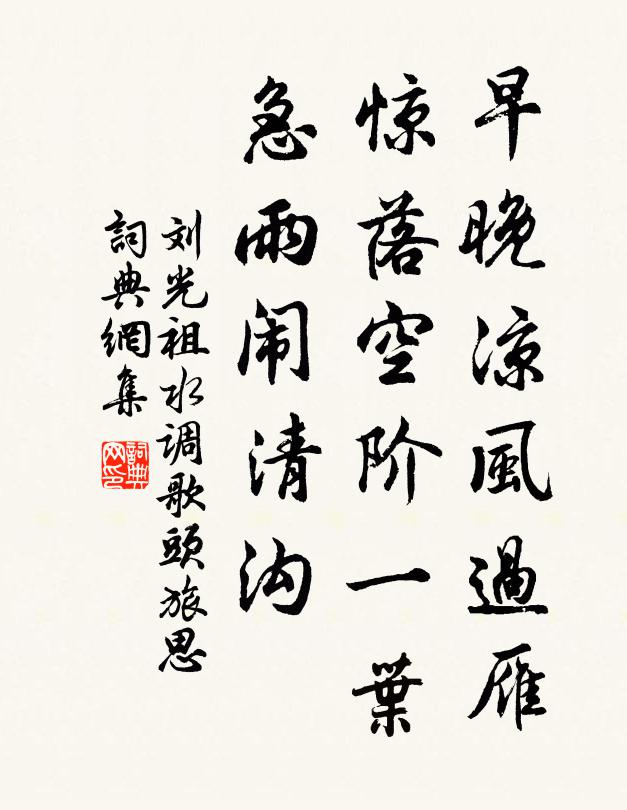 早晚凉風過雁
惊落空阶一葉
急雨闹清沟
刘光祖水调歌頭旅思
詞典網集
詞典网印